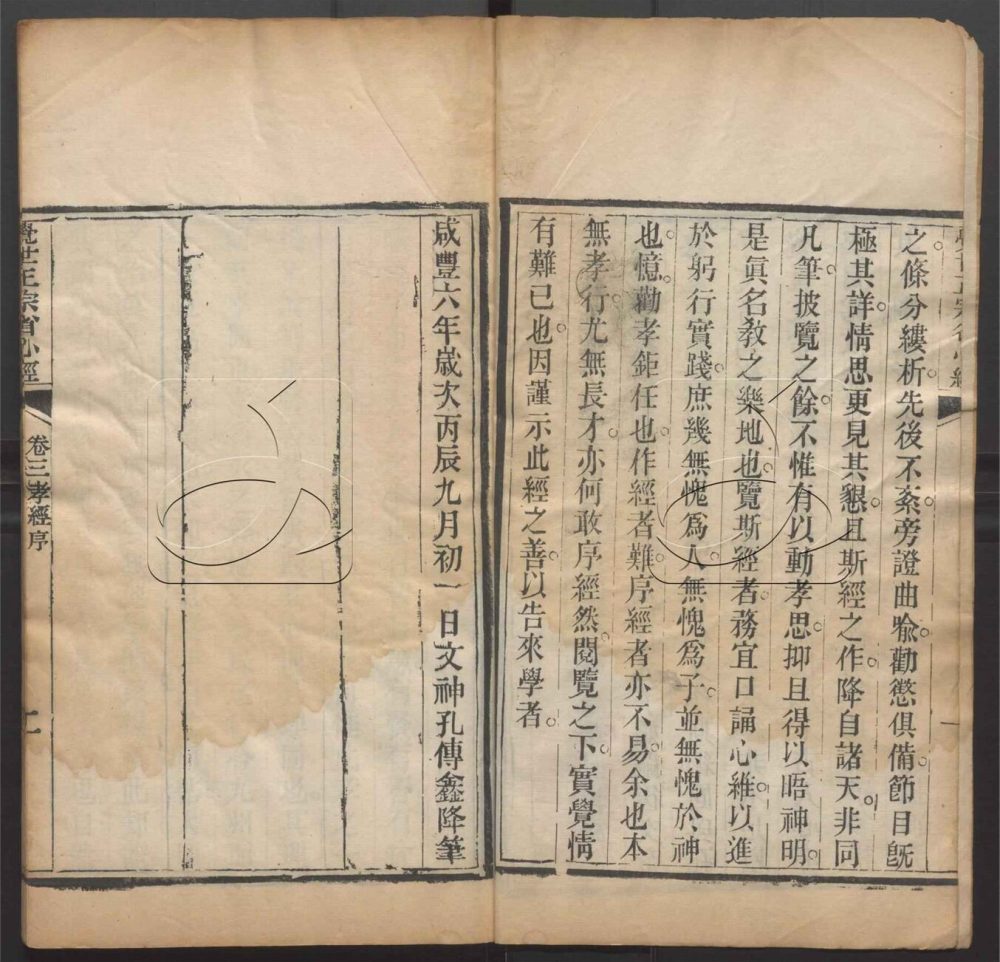 之條分縷析先後不紊旁證曲喩勸懲俱備節目旣
極其詳情思更見其懇且斯經之作降自諸天非同
凡筆披覽之餘不惟有以動孝思抑且得以晤神明
是眞名敎之樂地也覽斯經者務宜口誦心維以進
於躬行實踐庶幾無愧爲人無愧爲子並無愧於神
也憶勸孝鉅任也作經者難序經者亦不易余也本
無孝行尤無長才亦何敢序經然閱覽之下實覺情
有難已也因謹示此經之善以告來學者
咸豐六年歲次丙辰九月初一日文神孔傳鑫降筆
覺世正宗省心經
卷三孝經序